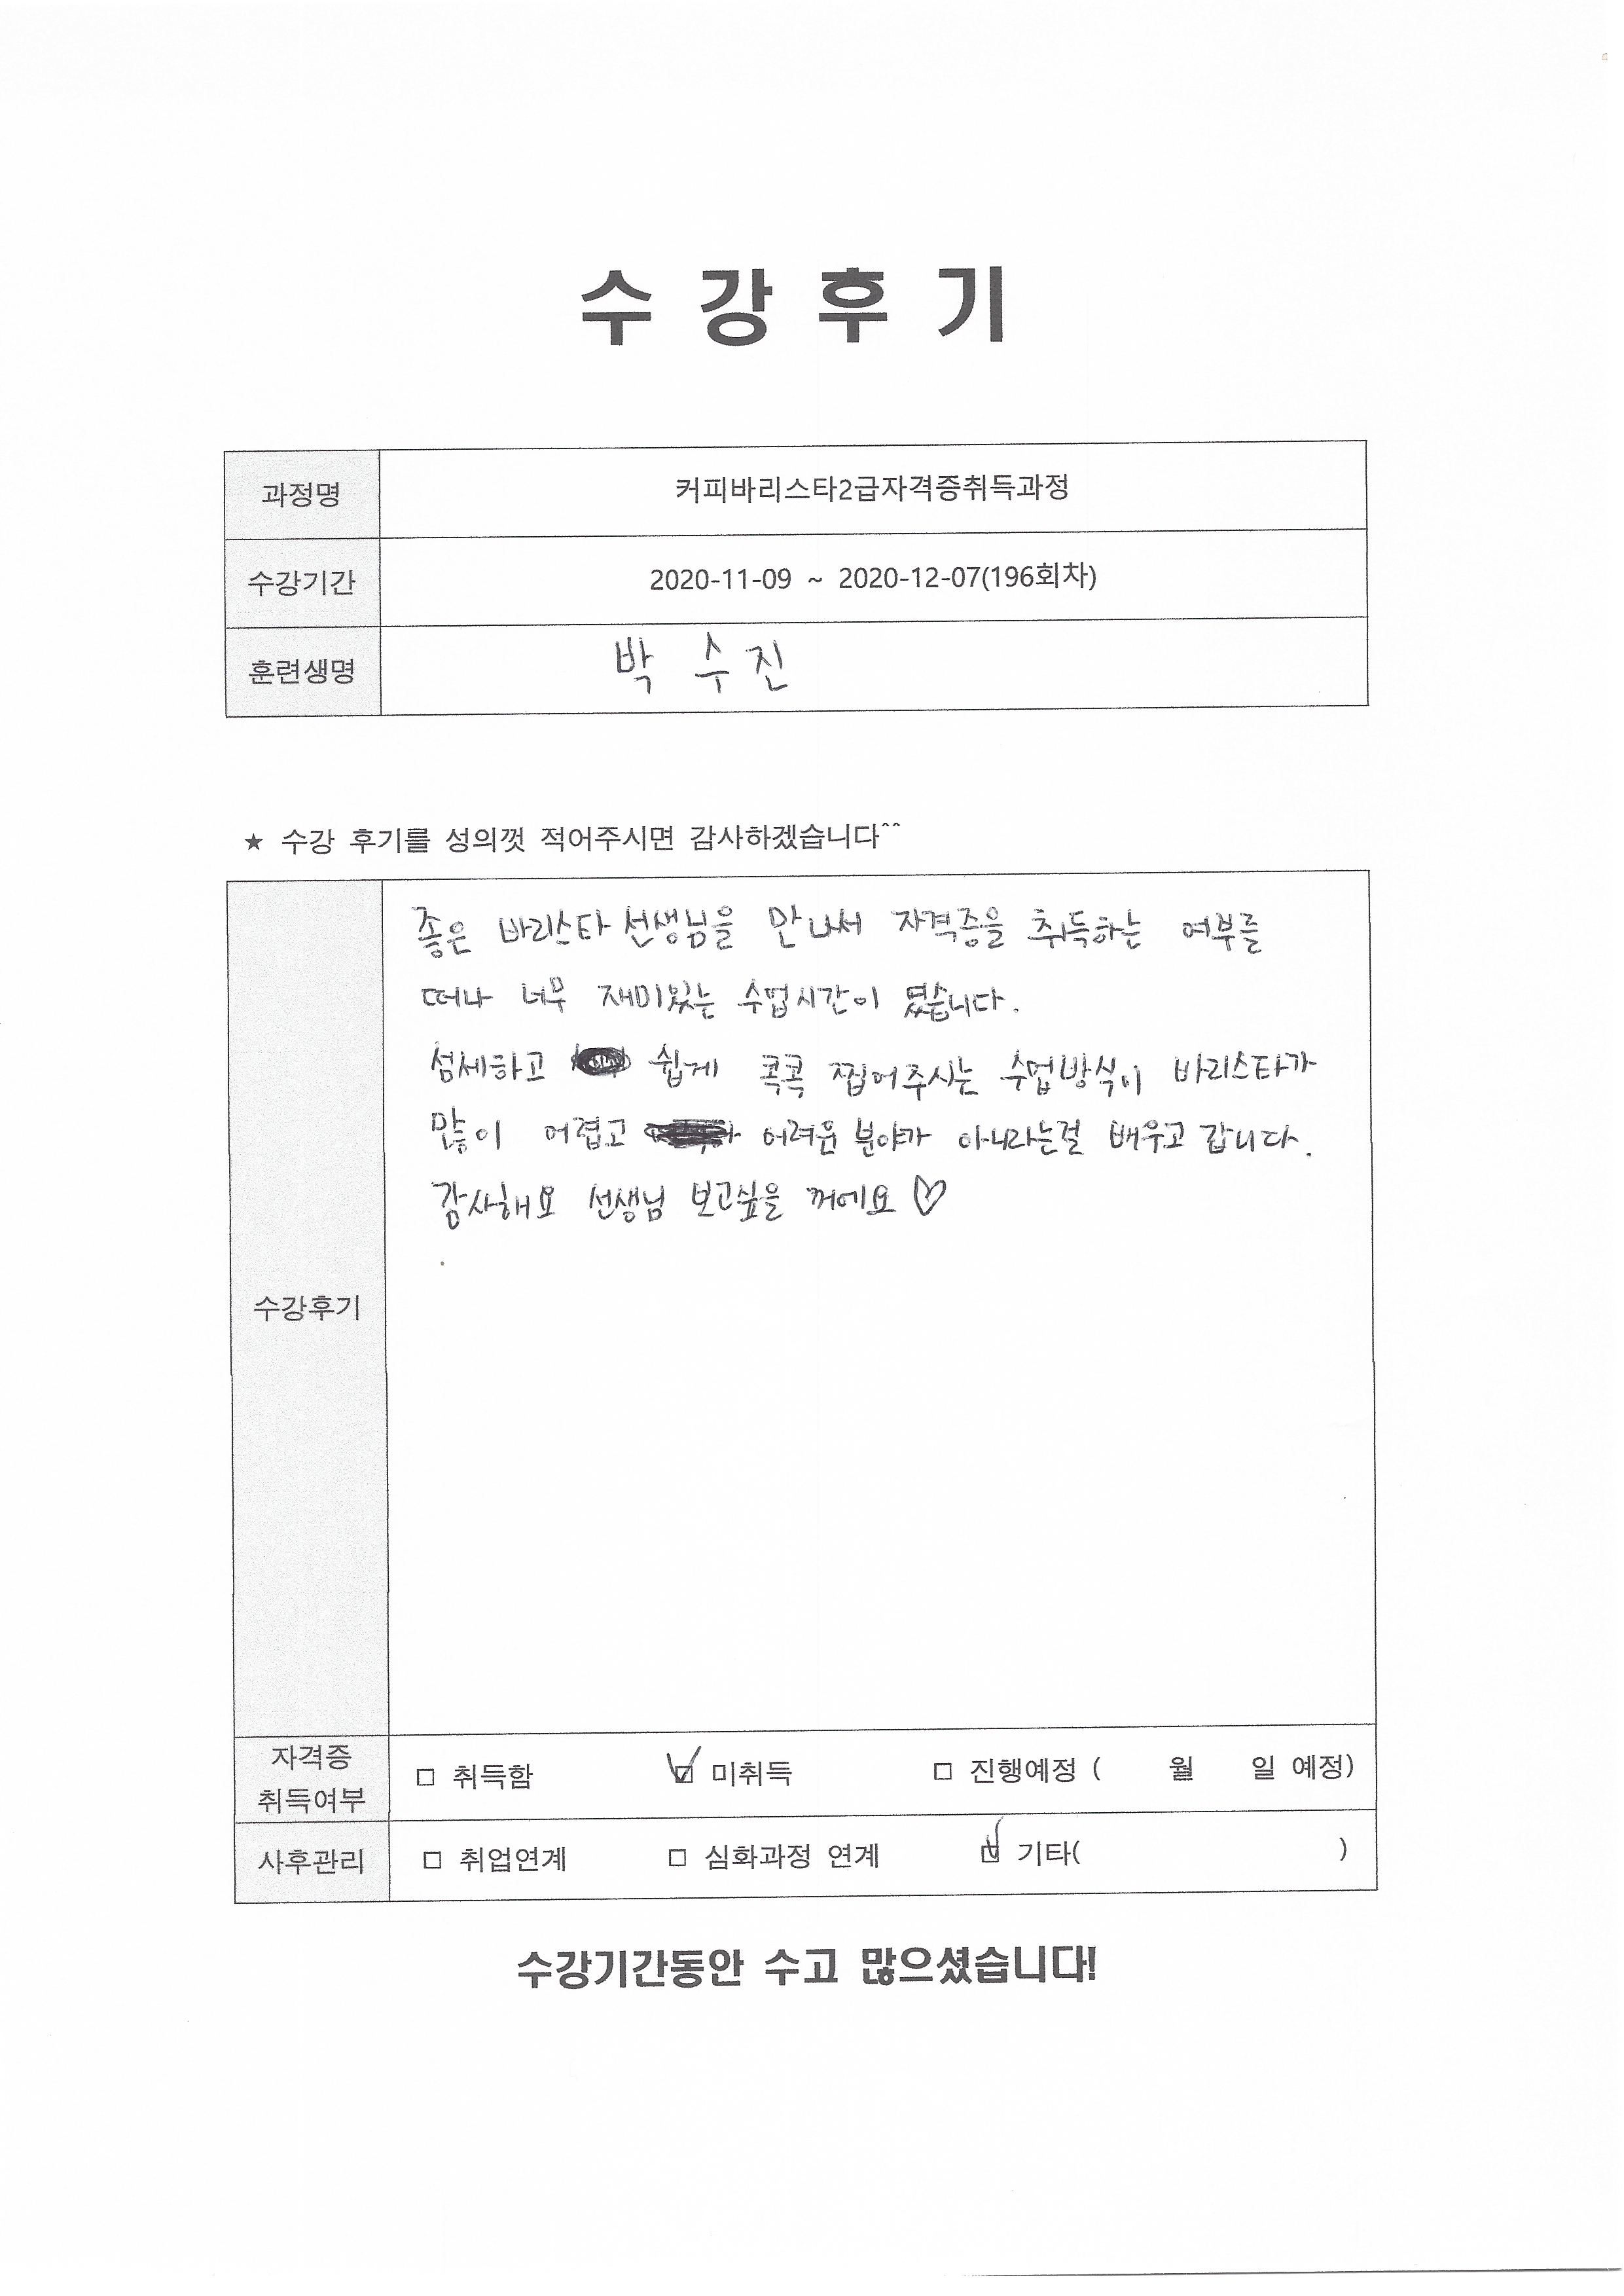 수 강 후 기
과정명 커피바리스타2급자격증취득과정
수강기간 2020-11-09 ~ 2020-12-07(196회차)
훈련생명 박 수 진
★ 수강 후기를 성의껏 적어주시면 감사하겠습니다^^
좋은 바리스타 선생님을 만나서 자격증을 취득하는 여부를
떠나 너무 재미있는 수업시간이 였습니다.
섬세하고 쉽게 콕콕 찝어주시는 수업방식이 바리스타가
많이 어렵고 어려운 분야가 아니라는걸 배우고 갑니다.
감사해요 선생님 보고싶을 꺼에요 ♡
수강후기
자격증
취득여부
□ 취득함 ☑ 미취득 □ 진행예정 ( 월 일 예정)
사후관리 □ 취업연계 □ 심화과정 연계 ☑ 기타( )
수강기간동안 수고 많으셨습니다!